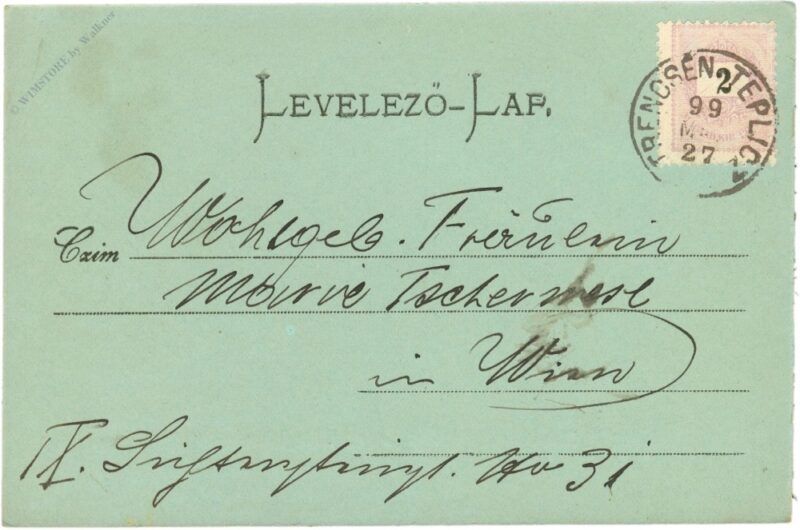 © WIMSTORE by Walkner
LEVELEZŐ-LAP.
2
TRENCSÉN TEPLICZ
99
27
Czim Wohlgeb. Fräulein
Marie Tschermese
in Wien
IX. No 31